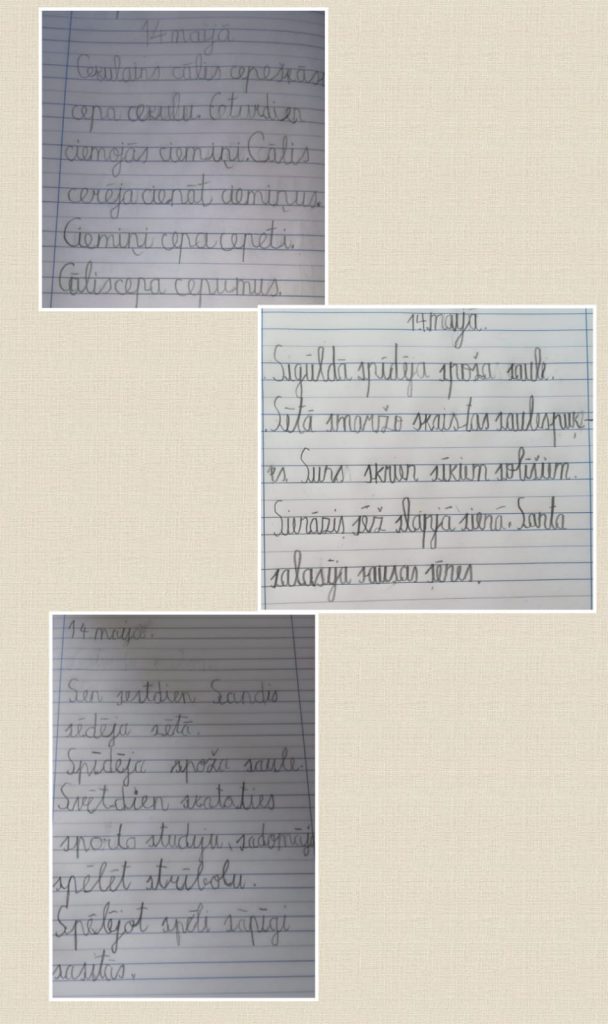 14 maijā
Cekulains cālis cepeškrāsn
cepa cekulu. Ceturdien
ciemojās ciemiņi. Cālis
cerēja cienāt ciemiņus.
Ciemiņi cepa cepeti.
Cālis cepa cepumus.
14 maijā.
Siguldā spīdēja spoža saule.
Sētā smaržo skaistas saulespuķ-
es. Suns skrien sīkiem solīšiem.
Sienāzis sēž slapjā sienā. Santa
salasīja sausas sēnes.
14 maijā.
Sen sestdien Sandis
sēdēja sētā.
Spīdēja spoža saule.
Svētdien skataties
sporta studiju, sadomāja
spēlēt strībolu.
Spēlējot spēli sāpīgi
sasitās.